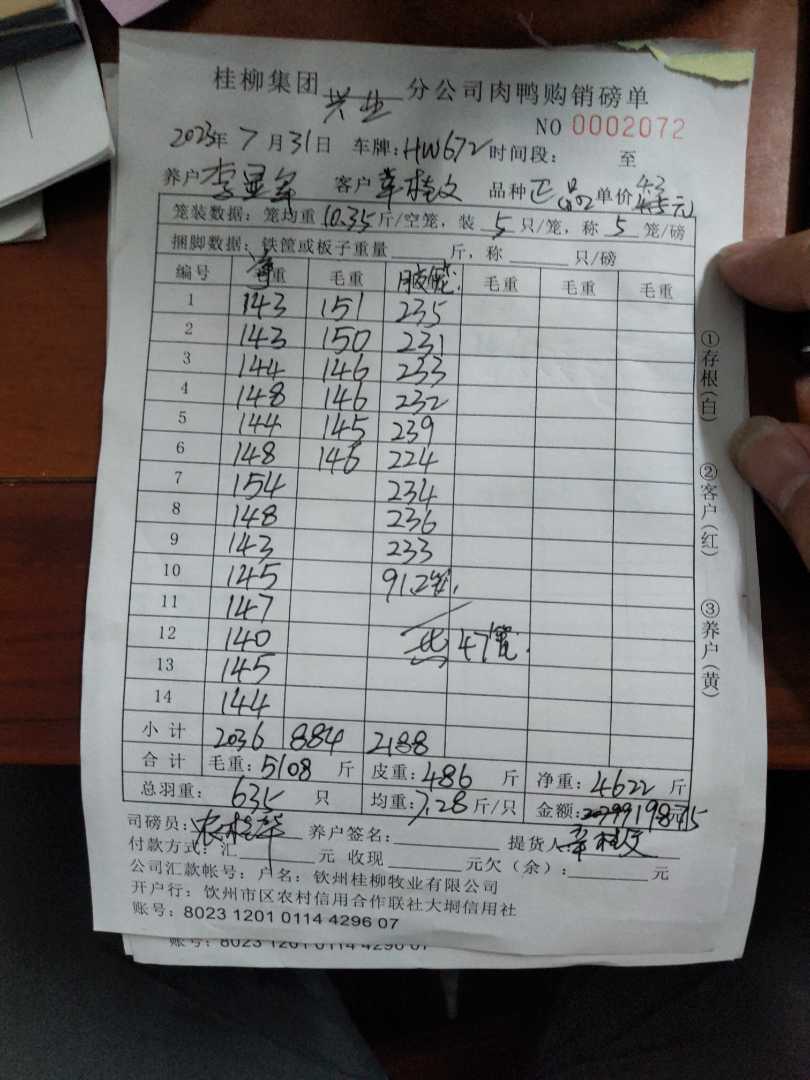 桂柳集团 兴业 分公司肉鸭购销磅单
NO 0002072
2023年 7 月 31 日 车牌: HW672 时间段: 至
养户 李显 客户 韦桂文 品种 正品 单价 4.3 4.5元
笼装数据: 笼均重 10.35 斤/空笼, 装 5 只/笼, 称 5 笼/磅
捆脚数据: 铁筐或板子重量 斤, 称 只/磅
编号 重 毛重 毛重 毛重 毛重
1 143 151 235
2 143 150 231
3 144 146 233
4 148 146 232
5 144 145 239
6 148 146 224
7 154 234
8 148 236
9 143 233
10 145 91.2
11 147
12 140 共 47笼
13 145
14 144
小计 2036 884 2188
合计 毛重: 5108 斤 皮重: 486 斤 净重: 4622 斤
总羽重: 635 只 均重: 7.28 斤/只 金额: 19875
司磅员: 农桂华 养户签名: 提货人 韦桂文
付款方式: 汇 元 收现 元欠(余): 元
公司汇款帐号: 户名: 钦州桂柳牧业有限公司
开户行: 钦州市区农村信用合作联社大垌信用社
账号: 8023 1201 0114 4296 07
账号: 8023 1201 0114 4296 07
①存根(白) ②客户(红) ③养户(黄)